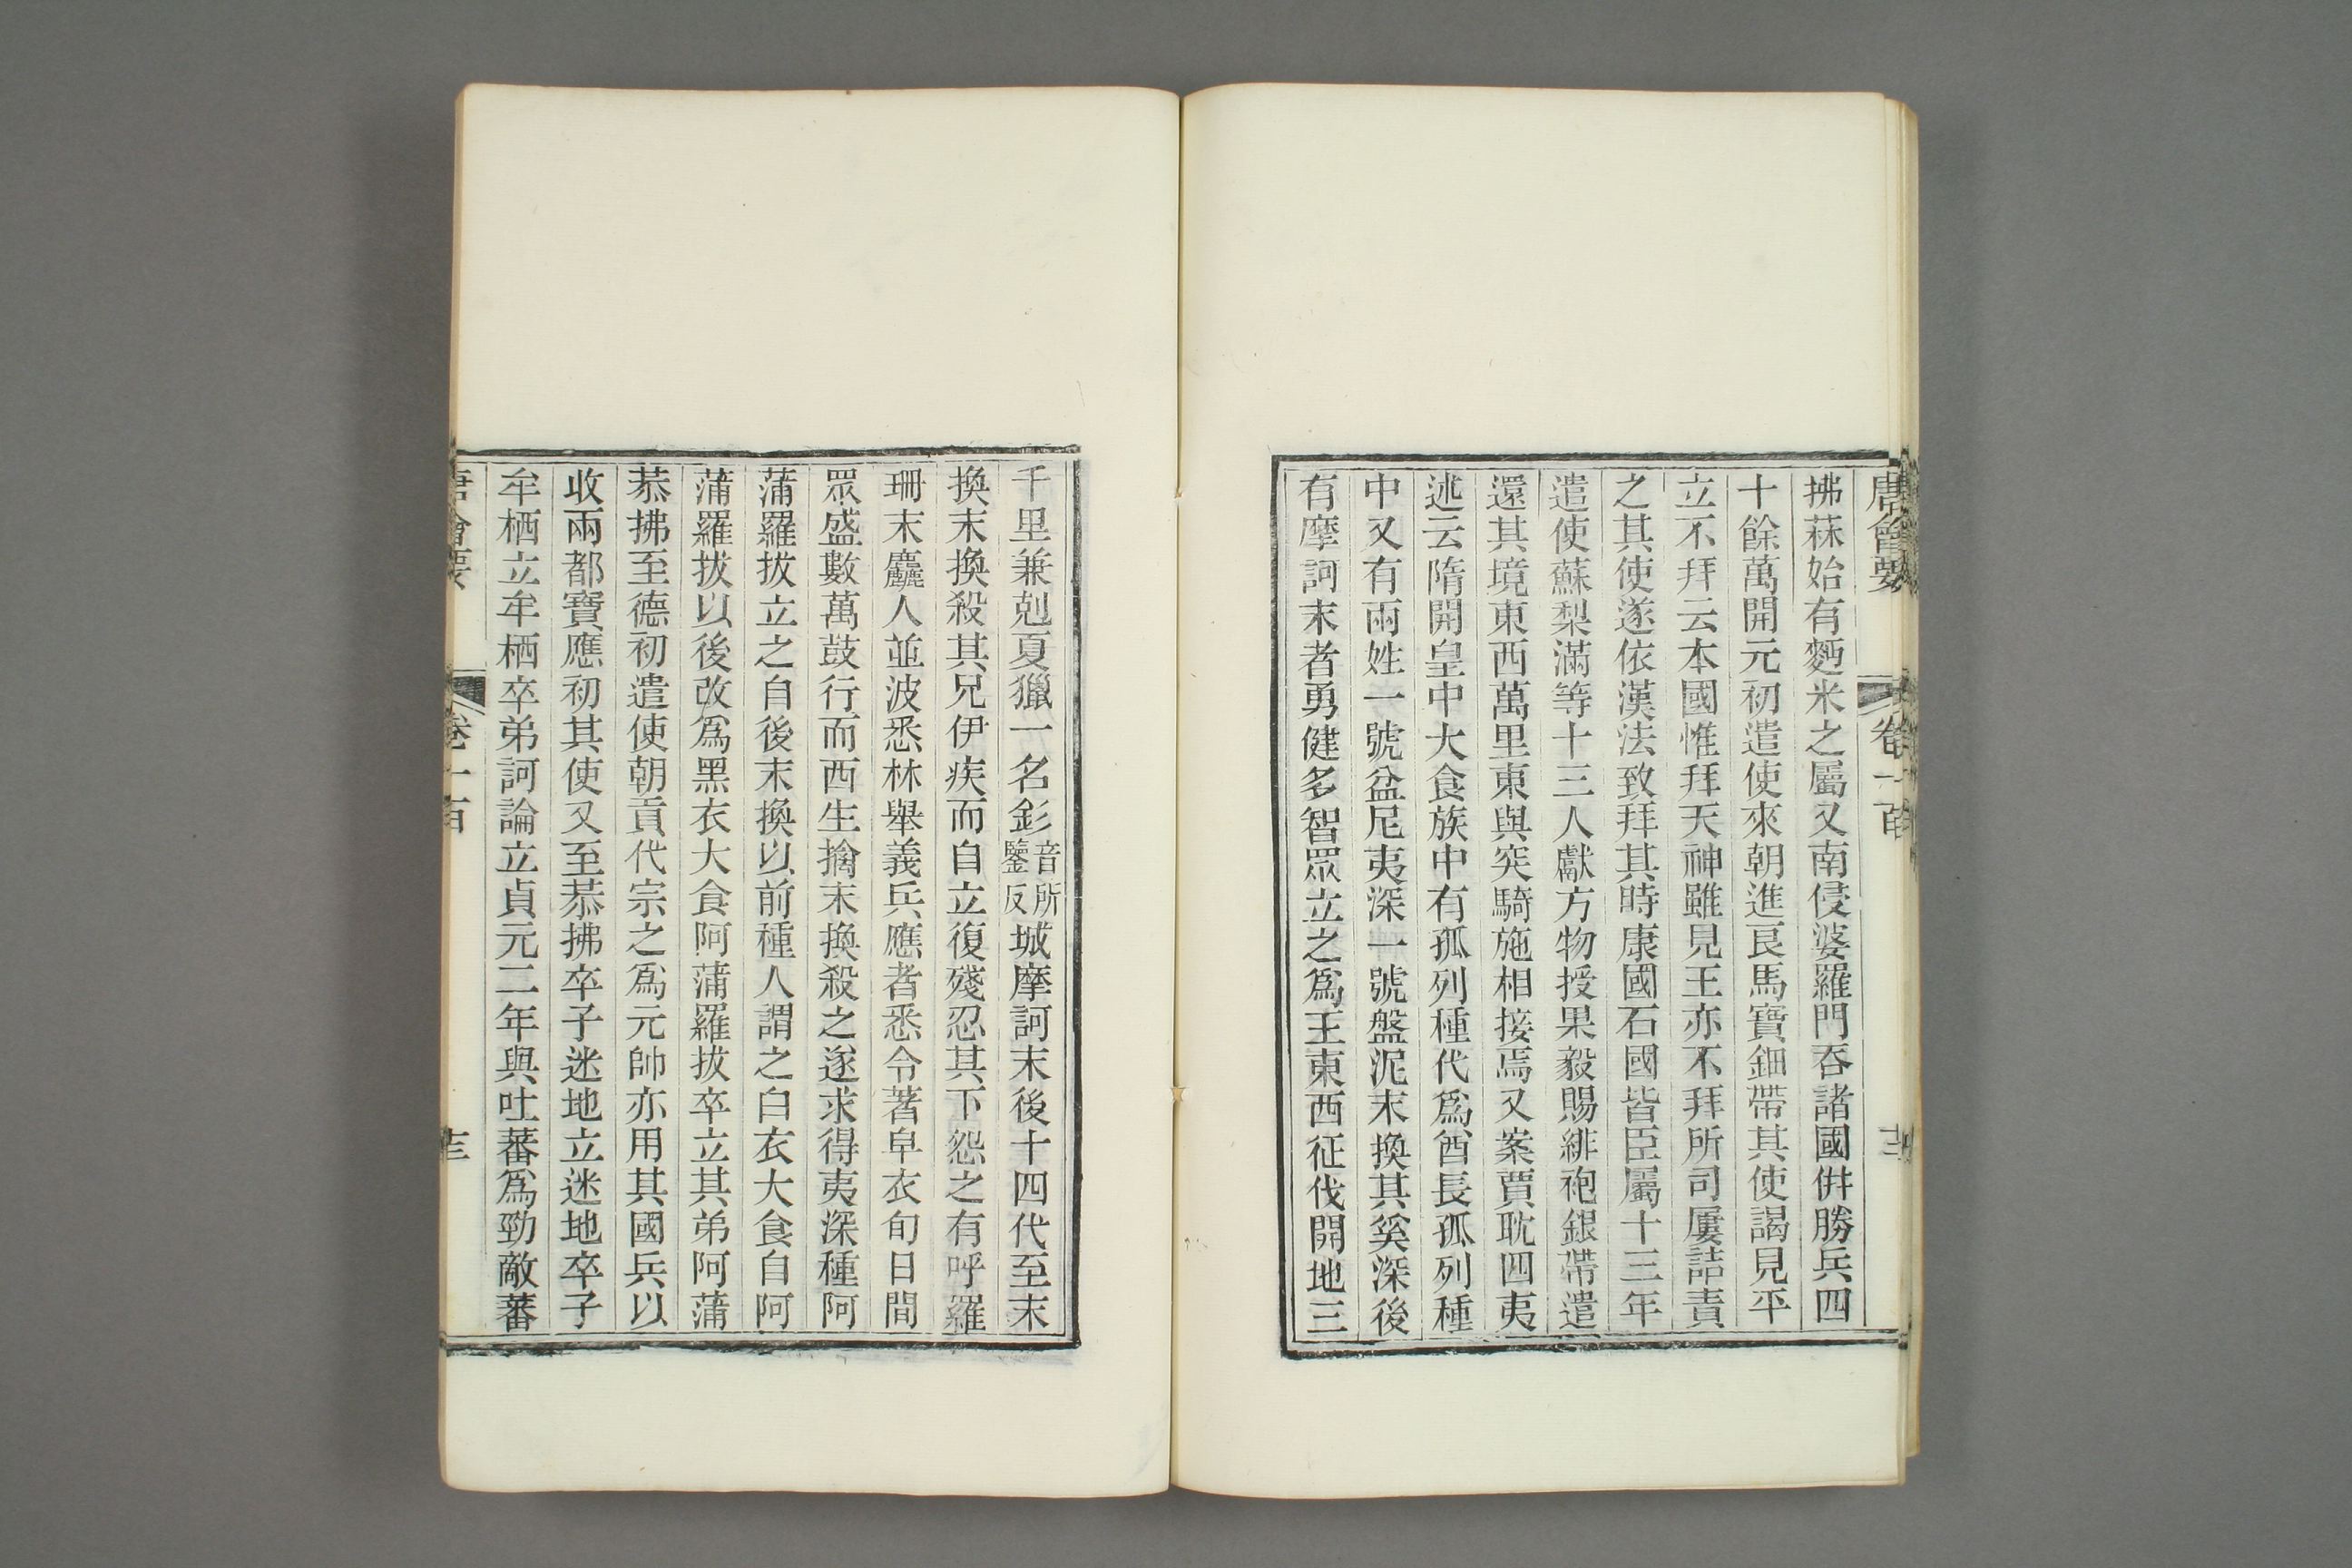 唐會要 卷一百
拂菻始有麪米之屬又南侵婆羅門吞諸國倂勝兵四
十餘萬開元初遣使來朝進良馬寶鈿帶其使謁見平
立不拜云本國惟拜天神雖見王亦不拜所司屢詰責
之其使遂依漢法致拜其時康國石國皆臣屬十三年
遣使蘇梨滿等十三人獻方物授果毅賜緋袍銀帶遣
還其境東西萬里東與突騎施相接焉又案賈耽四夷
述云隋開皇中大食族中有孤列種代爲酋長孤列種
中又有兩姓一號盆尼夷深一號盤泥末換其奚深後
有摩訶末者勇健多智眾立之爲王東西征伐開地三
千里兼剋夏獵一名釤音所鑒反城摩訶末後十四代至末
換末換殺其兄伊疾而自立復殘忍其下怨之有呼羅
珊末麤人並波悉林舉義兵應者悉令著皁衣旬日間
眾盛數萬鼓行而西生擒末換殺之遂求得夷深種阿
蒲羅拔立之自後末換以前種人謂之白衣大食自阿
蒲羅拔以後改爲黑衣大食阿蒲羅拔卒立其弟阿蒲
恭拂至德初遣使朝貢代宗之爲元帥亦用其國兵以
收兩都寶應初其使又至恭拂卒子迷地立迷地卒子
牟栖立牟栖卒弟訶論立貞元二年與吐蕃爲勁敵蕃
唐會要 卷一百